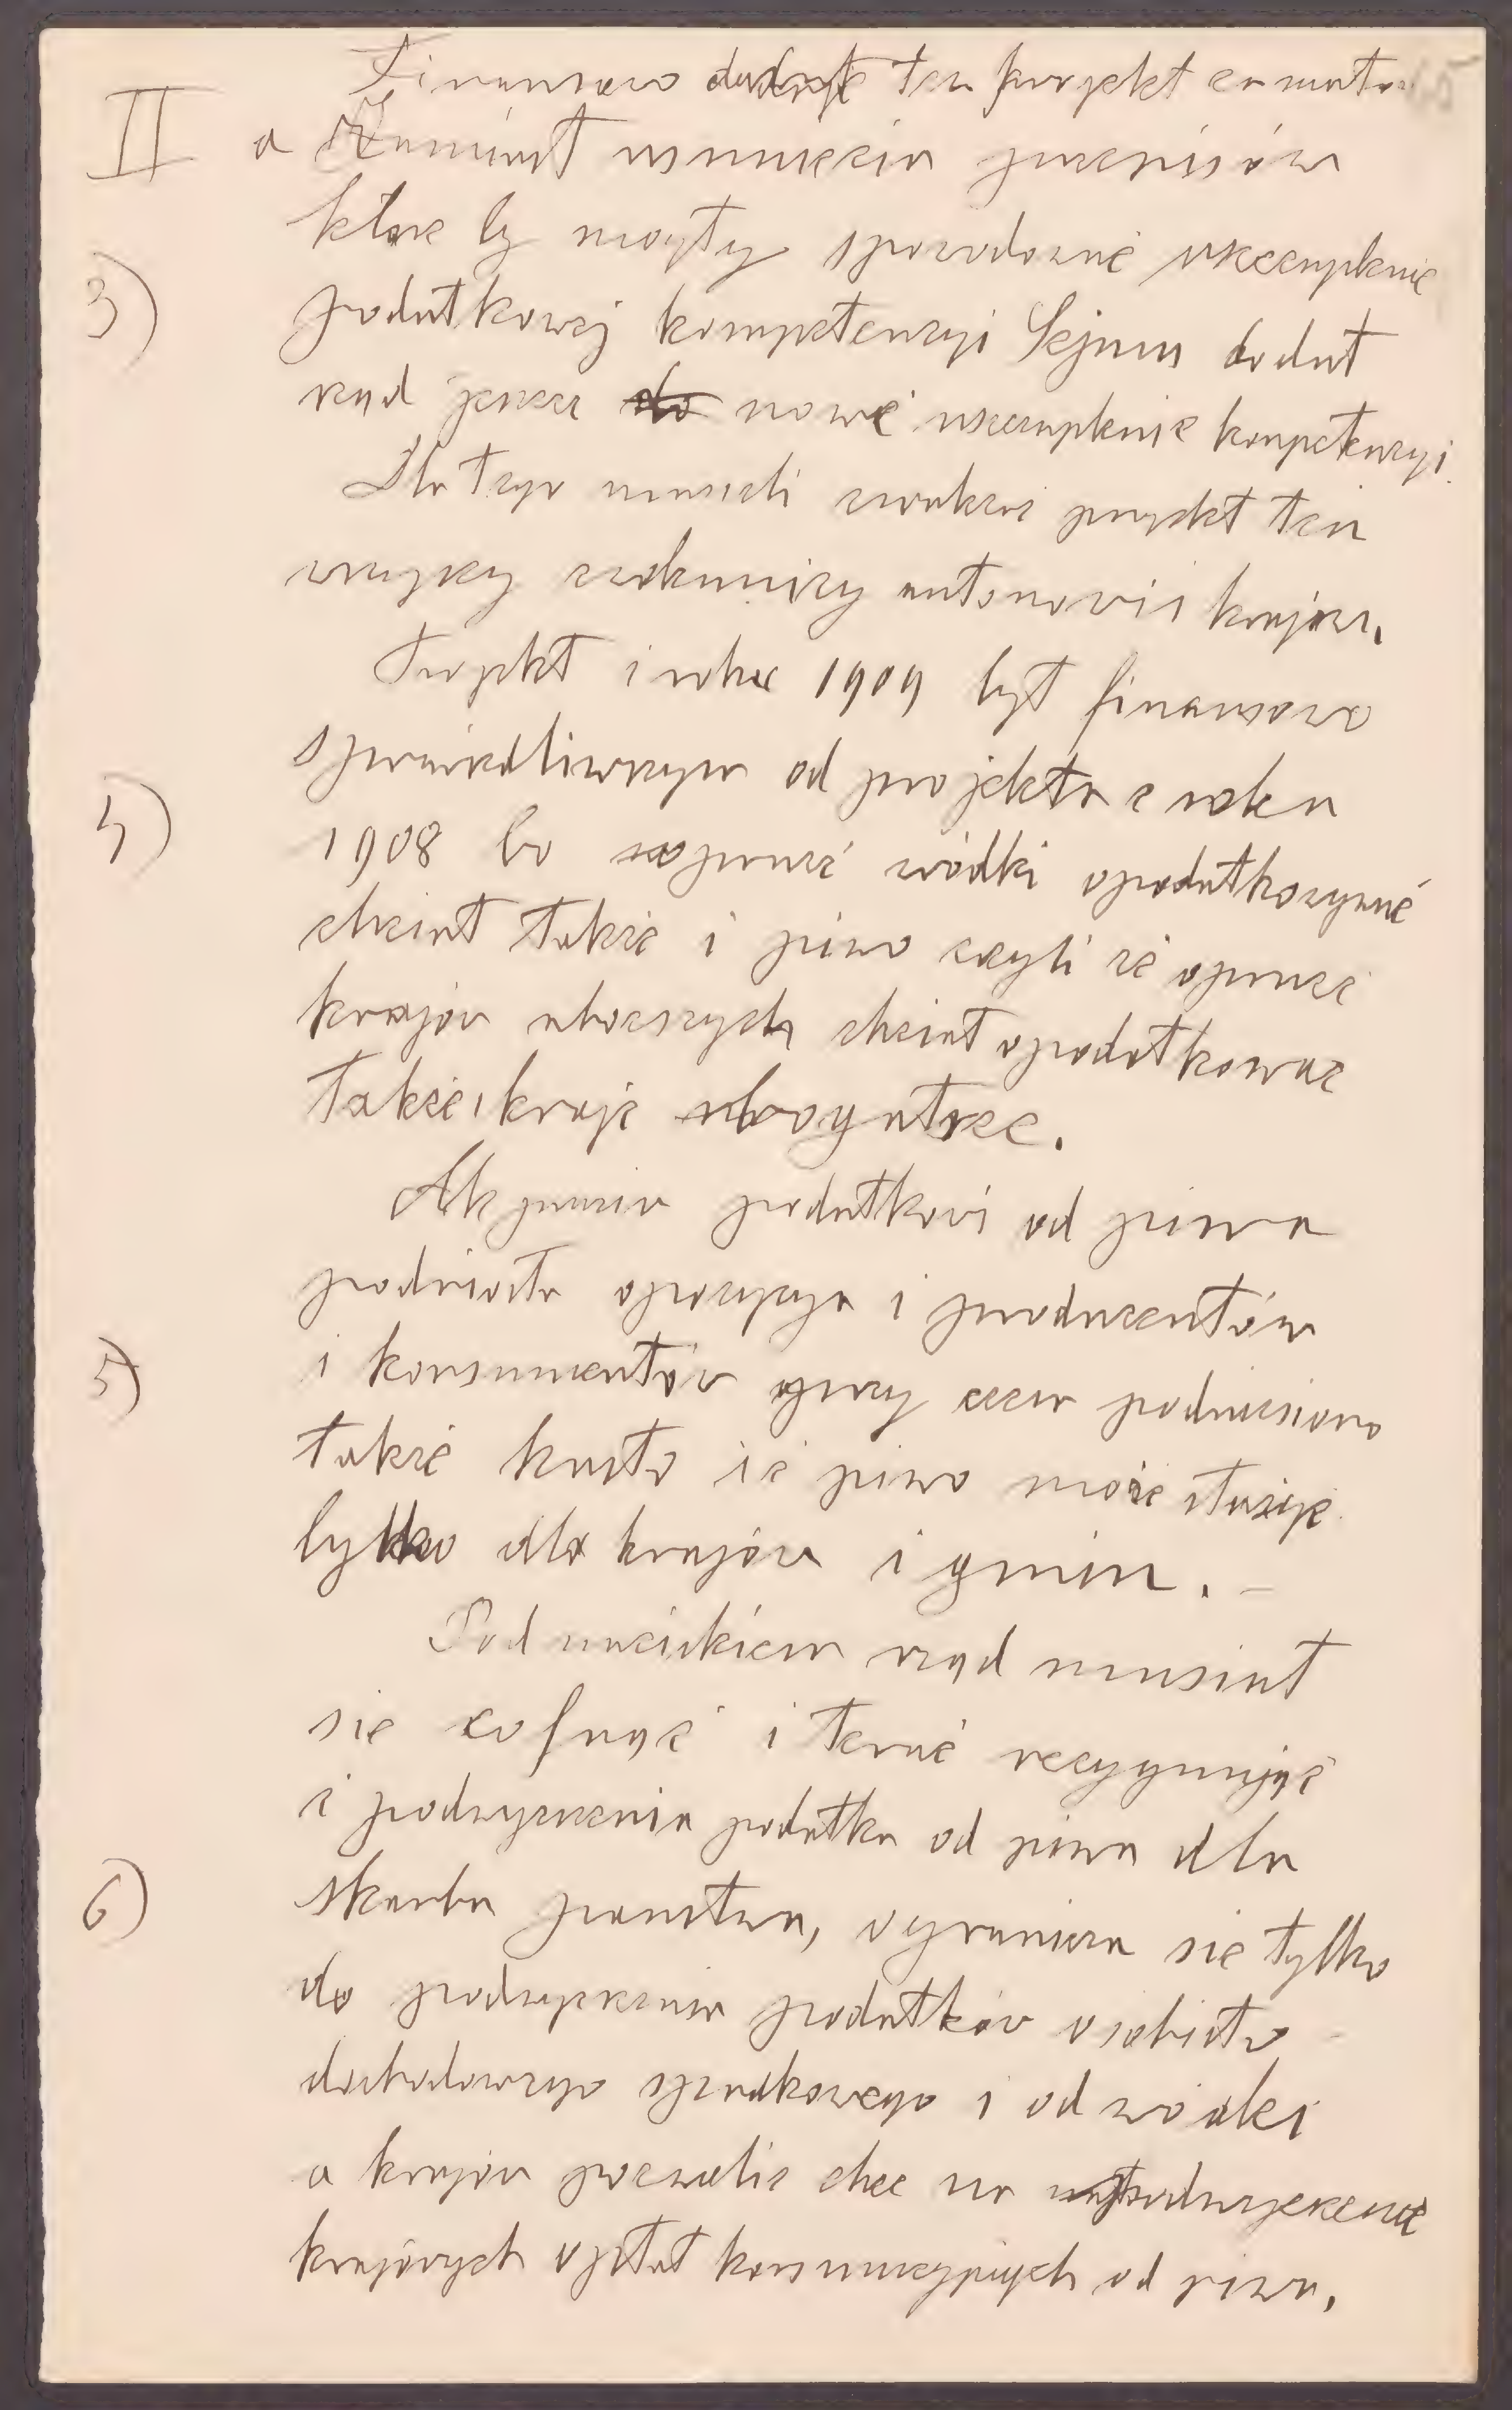 Finansowo dodaje ten projekt za mało
II a Zamiast usunięcia przepisów
które by mogły spowodować uszczuplenie
3) podatkowej kompetencyi Sejmu dodał
rząd jeszcze do nowe uszczuplenie kompetencyi.
Dla tego musieli zwalczać projekt ten
wszyscy zwolennicy autonomii krajow.
Projekt z roku 1909 był finansowo
sprawiedliwszym od projektu z roku
4) 1908 bo oprócz wódki opodatkowywać
chciał także i piwo czyli że oprócz
krajów uboższych chciał opodatkować
także kraje bogatsze.
Ale przeciw podatkowi od piwa
podniosła opozycya i producentów
5) i konsumentów przy czem podniesiono
także hasło że piwo może służyć
tylko dla krajów i gmin. –
Pod naciskiem rząd musiał
się cofnąć i teraz rezygnując
z podwyższenia podatku od piwa dla
6) skarbu państwa, ogranicza się tylko
do podwyższenia podatków osobisto
dochodowego spadkowego i od wódki
a krajom pozwolić chce na podwyższenie
krajowych opłat konsumcyjnych od piwa.